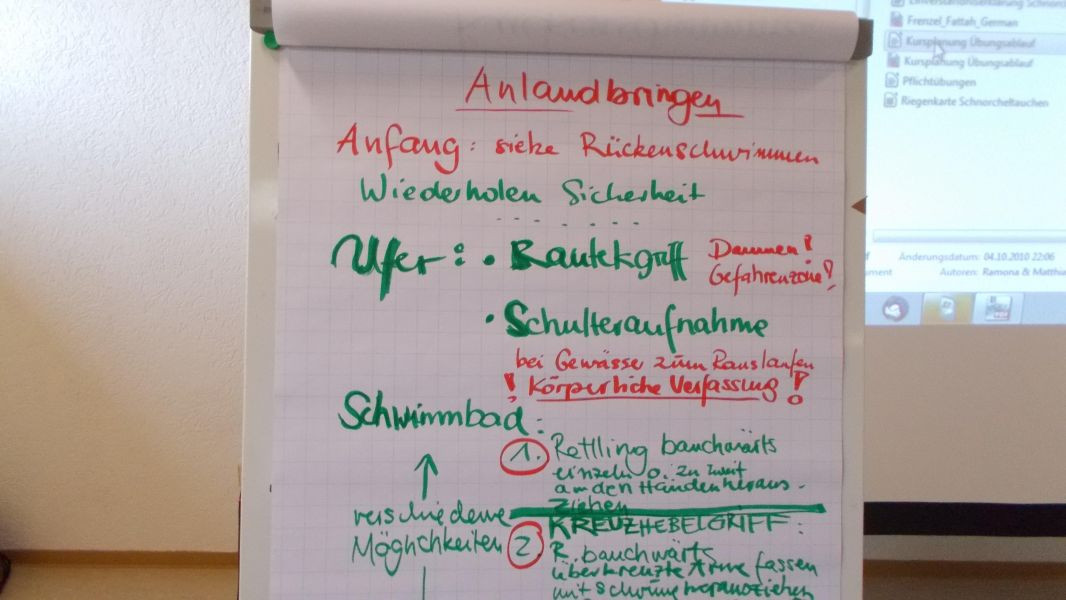 Anlandbringen
Anfang: siehe Rückenschwimmen
Wiederholen Sicherheit
Ufer: • Rautekgriff
Daumen!
Gefahrenzone!
• Schulteraufnahme
bei Gewässer zum Rauslaufen
! Körperliche Verfassung !
Schwimmbad:
verschiedene
Möglichkeiten
1. Rettling bauchwärts
einzeln o. zu zweit
an den Händen heraus-
ziehen
2. KREUZHEBELGRIFF:
R. bauchwärts
überkreuzte Arme fassen
mit Schwung herausziehen
Frenzel_Fattah_German
Kursplanung Übungsablauf
Kursplanung Übungsablauf
Pflichtübungen
Riegenkarte Schnorcheltauchen
Änderungsdatum: 04.10.2010 22:06
Autoren: Ramona & Matthia